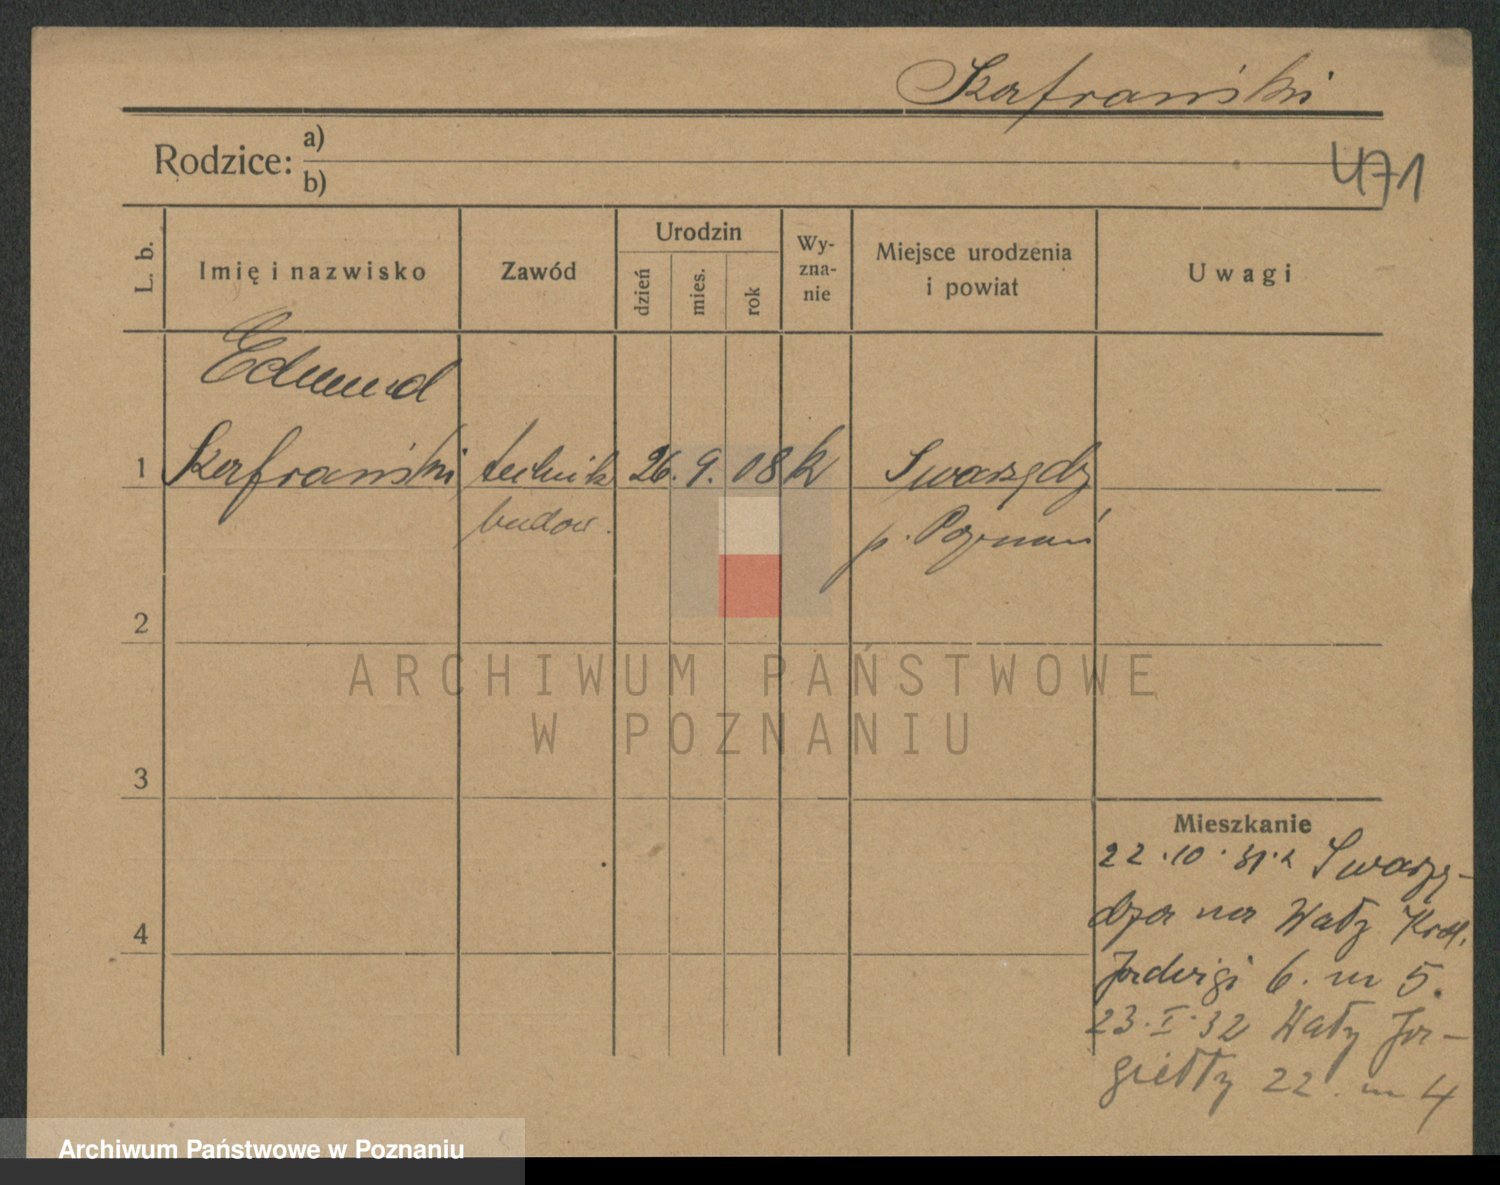 Szafrański
Rodzice: a)
b)
471
L. b.
Imię i nazwisko
Zawód
Urodzin
dzień
mies.
rok
Wy-
zna-
nie
Miejsce urodzenia
i powiat
Uwagi
Edmund
1 Szafrański technik 26. 9. 08 k Swarzędz
budow. p. Poznań
2
3
4
Mieszkanie
22.10.31. z Swarzę-
dza na Wały Król.
Jadwigi 6. m 5.
23.I.32 Wały Ja-
giełły 22. m 4
ARCHIWUM PAŃSTWOWE
W POZNANIU
Archiwum Państwowe w Poznaniu